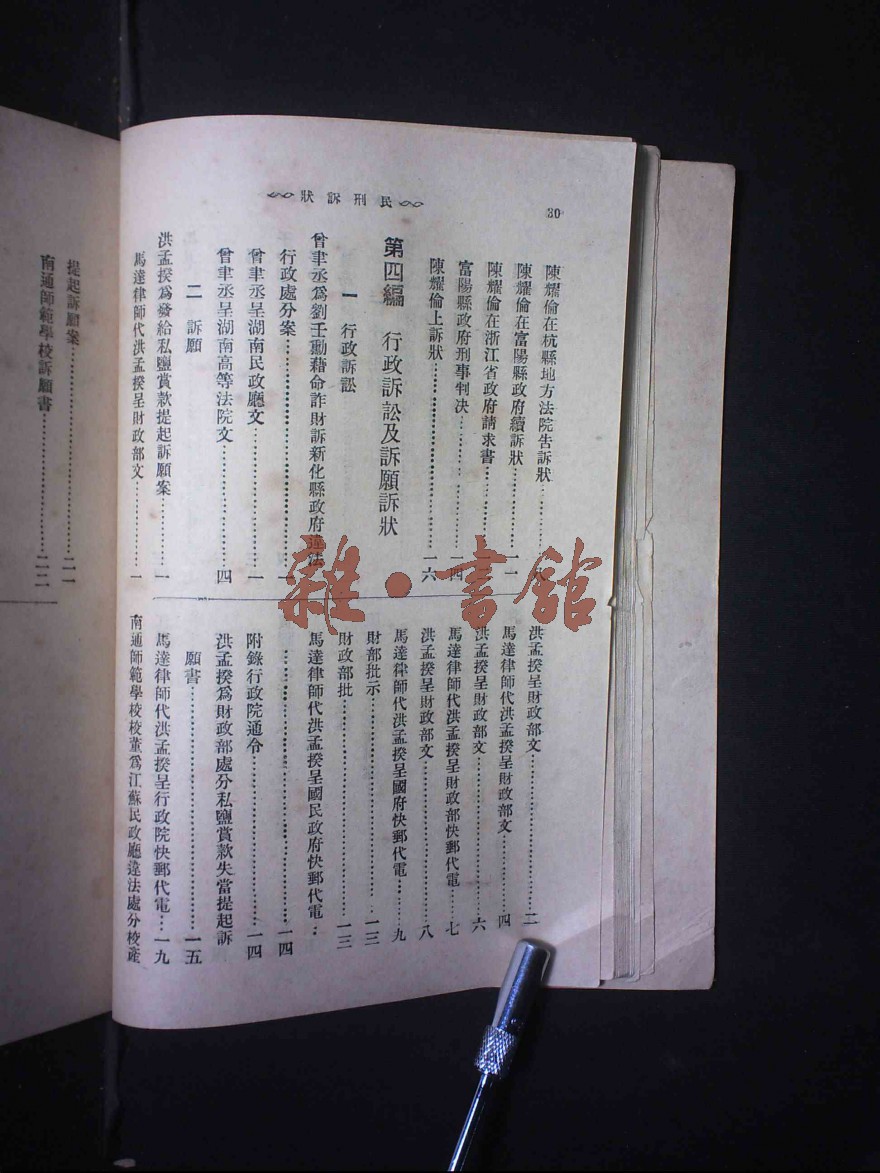 民刑訴狀
30
陳耀倫在杭縣地方法院告訴狀…………九
陳耀倫在富陽縣政府續訴狀…………一一
陳耀倫在浙江省政府請求書…………一二
富陽縣政府刑事判决…………一四
陳耀倫上訴狀…………一六
第四編 行政訴訟及訴願訴狀
一 行政訴訟
曾聿丞爲劉壬勳藉命詐財訴新化縣政府違法
行政處分案…………一
曾聿丞呈湖南民政廳文…………一
曾聿丞呈湖南高等法院文…………四
二 訴願
洪孟揆爲發給私鹽賞款提起訴願案…………一
馬達律師代洪孟揆呈財政部文…………一
洪孟揆呈財政部文…………二
馬達律師代洪孟揆呈財政部文…………四
洪孟揆呈財政部文…………六
馬達律師代洪孟揆呈財政部快郵代電…………七
洪孟揆呈財政部文…………八
馬達律師代洪孟揆呈國府快郵代電…………九
財部批示…………一三
財政部批…………一三
馬達律師代洪孟揆呈國民政府快郵代電…
…………一四
附錄行政院通令…………一四
洪孟揆爲財政部處分私鹽賞款失當提起訴
願書…………一五
馬達律師代洪孟揆呈行政院快郵代電…一九
南通師範學校校董爲江蘇民政廳違法處分校產
提起訴願案…………二一
南通師範學校訴願書…………二二
雜·書館